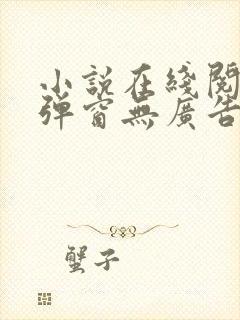 小説在綫閱
彈窗無廣告
蟹子